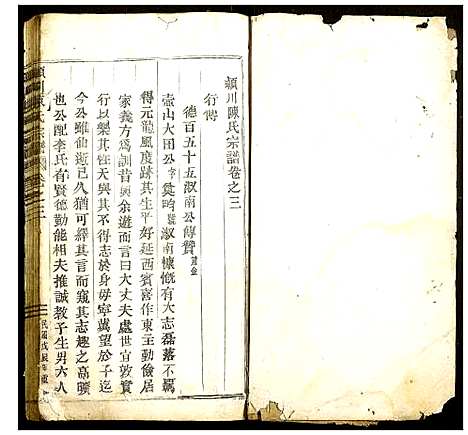 潁川陳氏宗譜卷之三
行傳
德百五十五淑南公傳贊
壺山大田公字奠昀號淑南慷慨有大志磊落不羈
得元龍風度跡其生平好延西賓喜作東主勤儉居
家義方為訓昔與余遊而言曰大丈夫處世宜敦實
行以樂其性天與其不得志於身寧冀望於子迄
今公雖仙逝已久猶可繹其言而窺其志趣之高曠
也公配李氏有賢德勤能相夫推誠教子生男六人